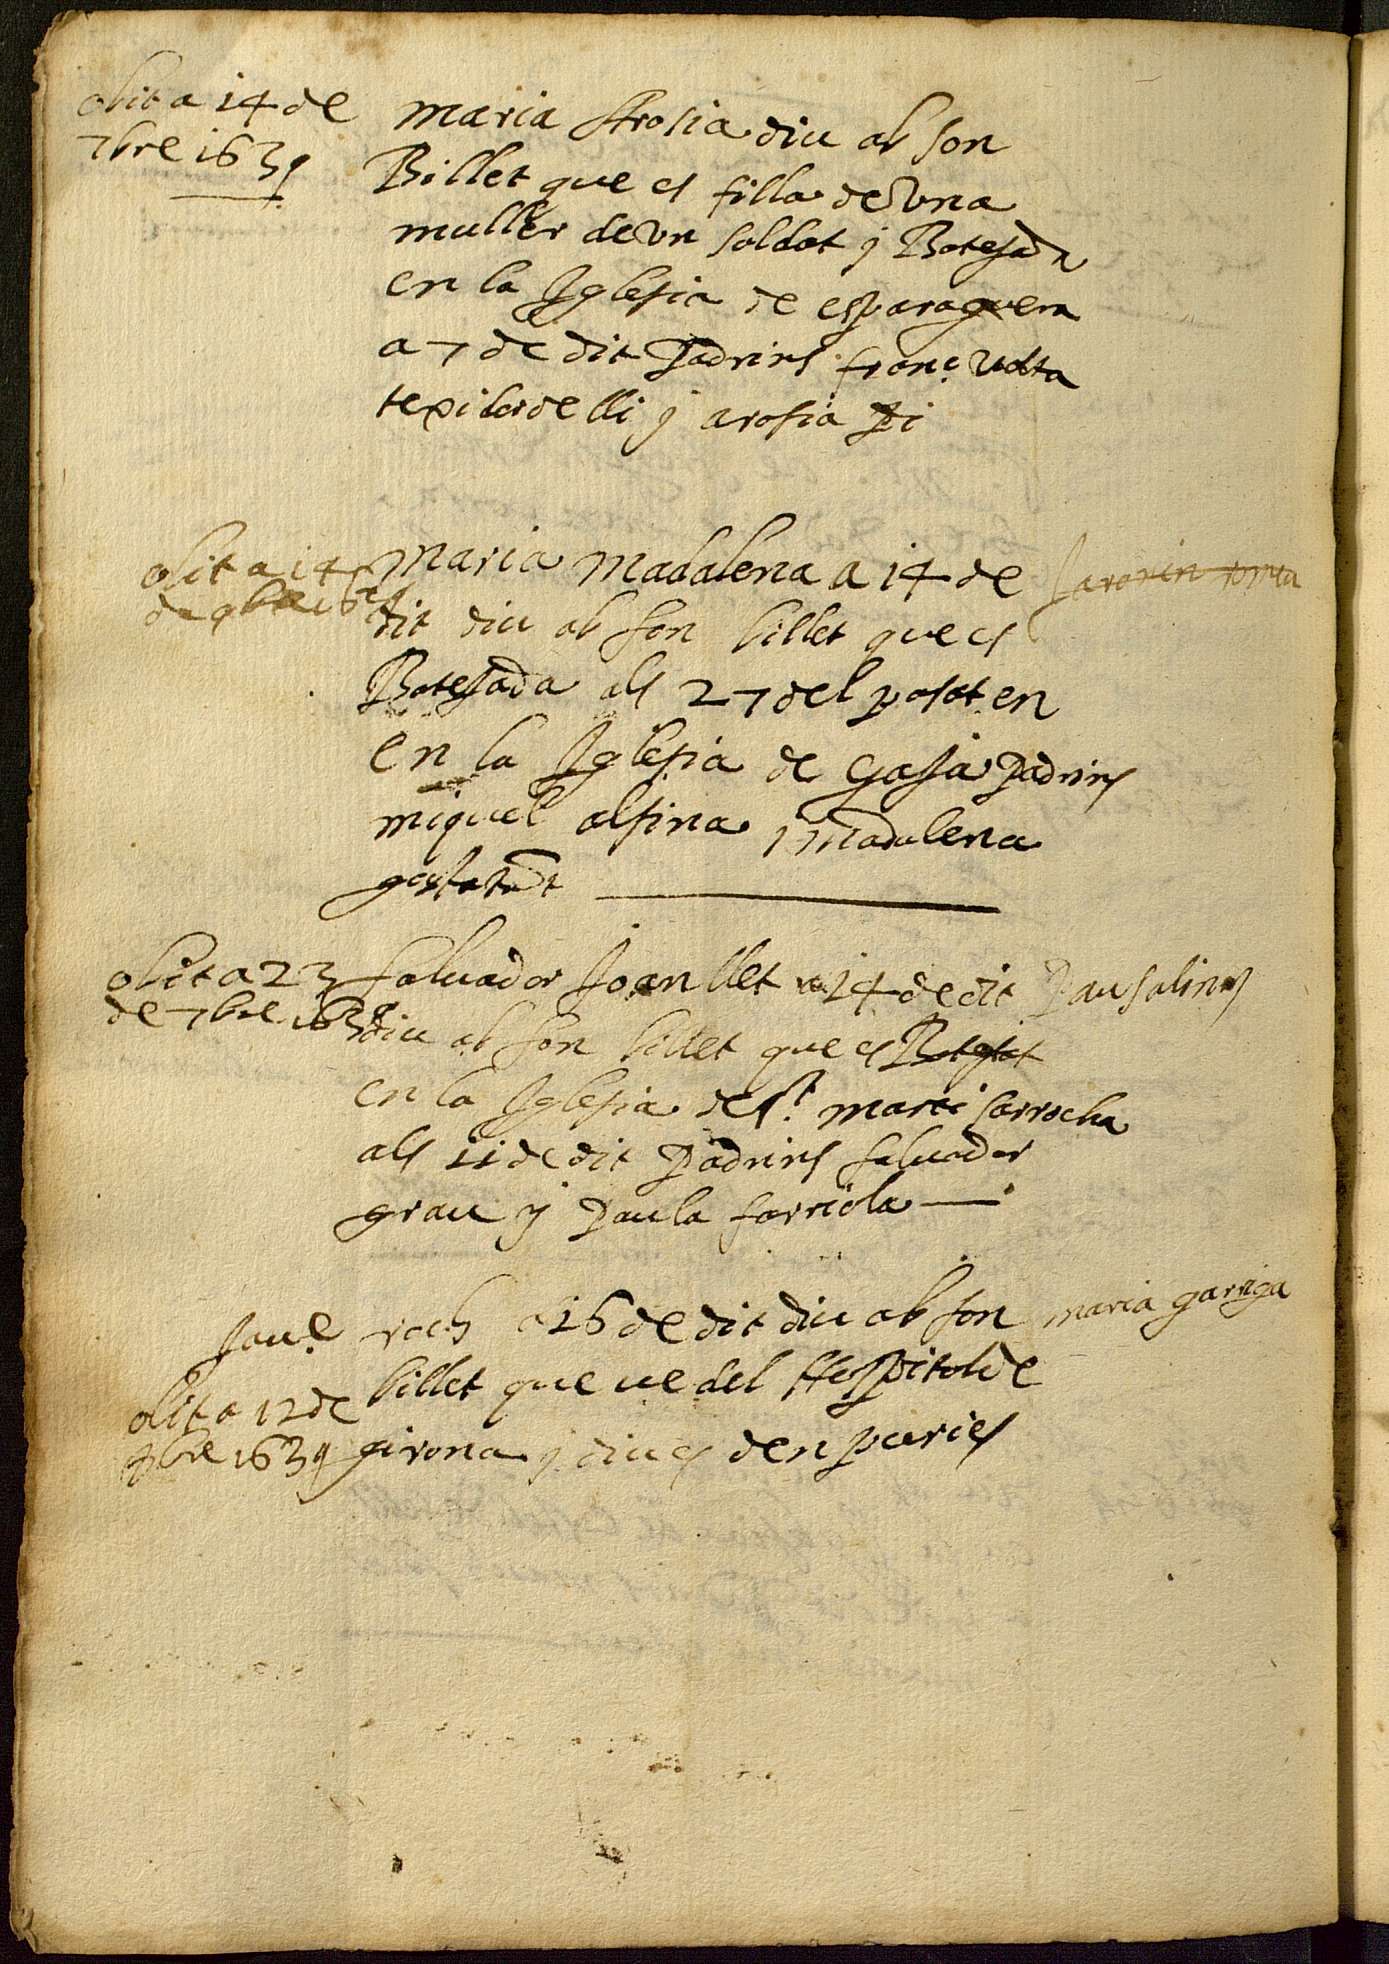 obit a 14 de
7bre 1639
maria Arosia diu ab son
Billet que es filla de Vna
muller de Vn soldat y Batejada
en la Iglesia de esparaguera
a 7 de dit Padrins franc. Volta
texidor de lli y arosia Pi
obit a 14
de 9bre 16
maria Madalena a 14 de
dit diu ab son billet que es
Batejada als 27 del pasat en
en la Iglesia de Gaja Padrins
miquel alsina y Madalena
obit a 23
de 7bre 1639
saluador Joan llet a 14 de dit
Pau salines
diu ab son billet que es Batejat
en la Iglesia de st. marti sarrocha
als 11 de dit Padrins saluador
grau y Paula sarriola
Jau.e roch a 16 de dit diu ab son
maria garriga
billet que ve del Hospital de
obit a 12 de
9bre 1639
girona y diu es den paries